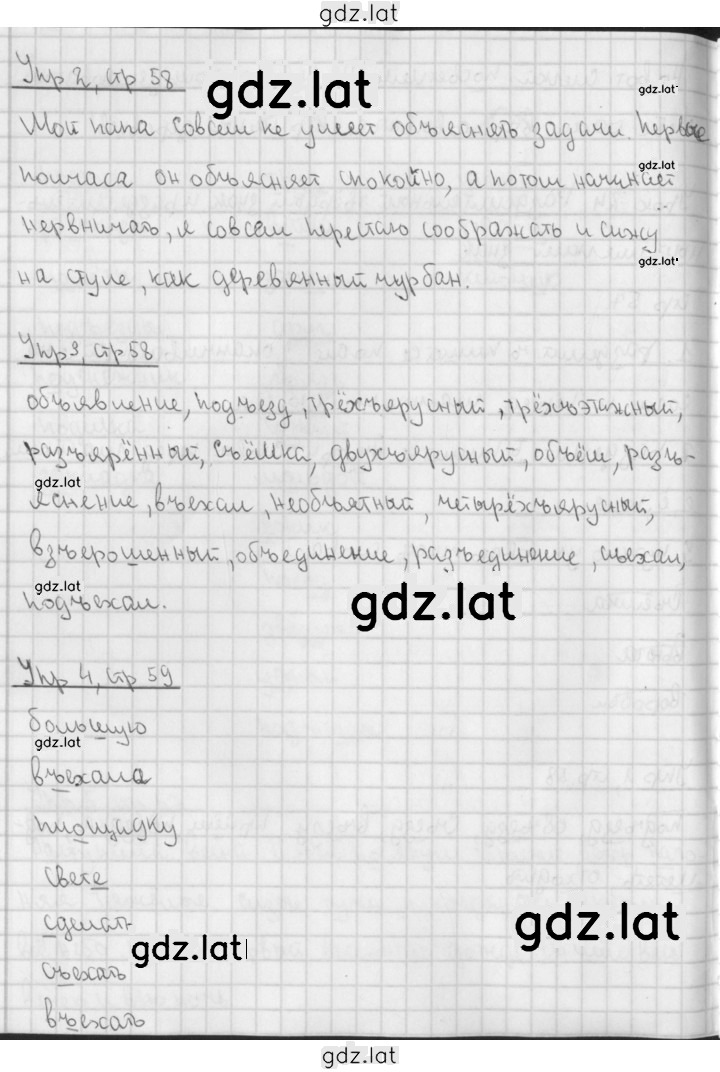 gdz.lat
Упр 2, стр 58
gdz.lat
gdz.lat
Мой папа совсем не умеет объяснять задачи. Первые
gdz.lat
полчаса он объясняет спокойно, а потом начинает
нервничать, я совсем перестаю соображать и сижу
gdz.lat
на стуле, как деревянный чурбан.
Упр 3, стр 58
объявление, подъезд, трёхъярусный, трёхъэтажный,
разъярённый, съёмка, двухъярусный, объём, разъ-
gdz.lat
яснение, въехал, необъятный, четырёхъярусный,
взъерошенный, объединение, разъединение, съехал,
gdz.lat
подъехал.
gdz.lat
Упр 4, стр 59
большую
gdz.lat
въехала
площадку
свете
сделать
gdz.lat
gdz.lat
съехать
въехать
gdz.lat